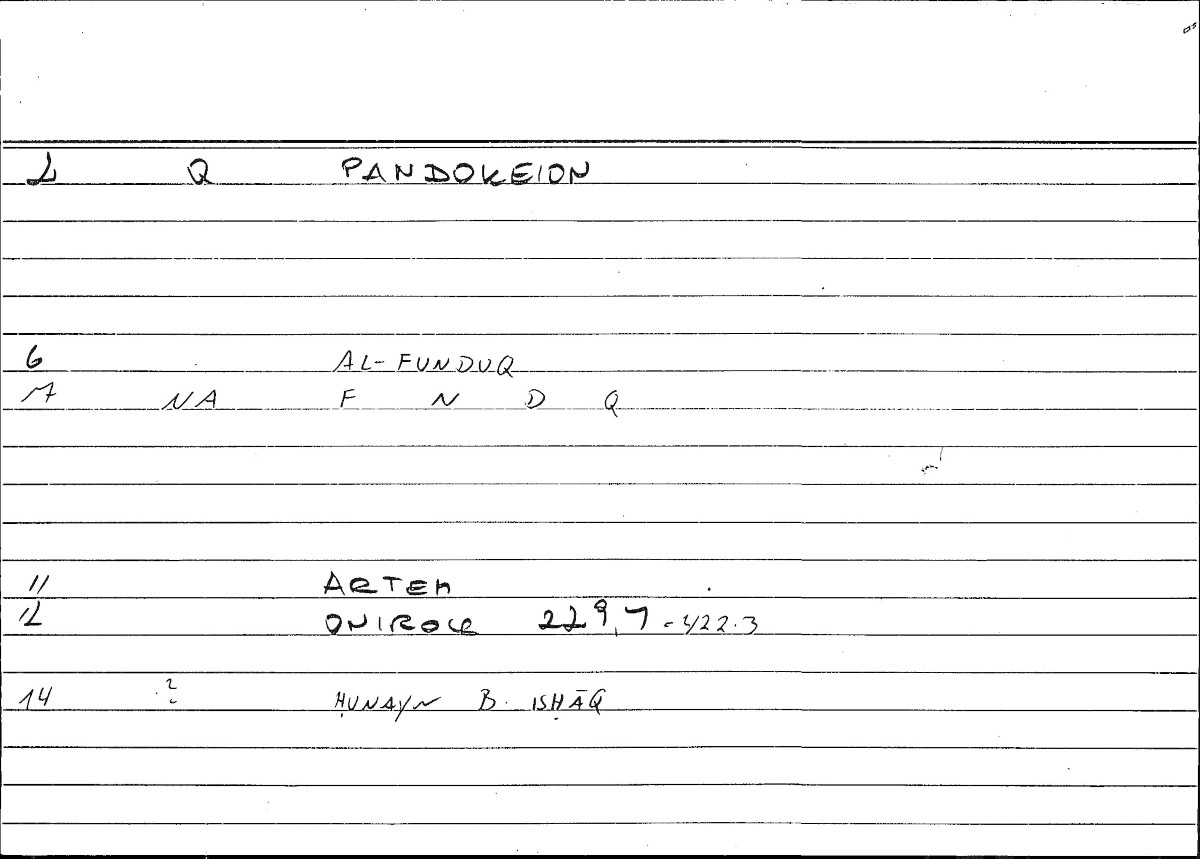 2 Q PANDOKEION
6 AL-FUNDUQ
7 NA F N D Q
11 ARTEM
12 ONIROCR 229,7 = 422.3
14 ? ḤUNAYN B. ISḤĀQ